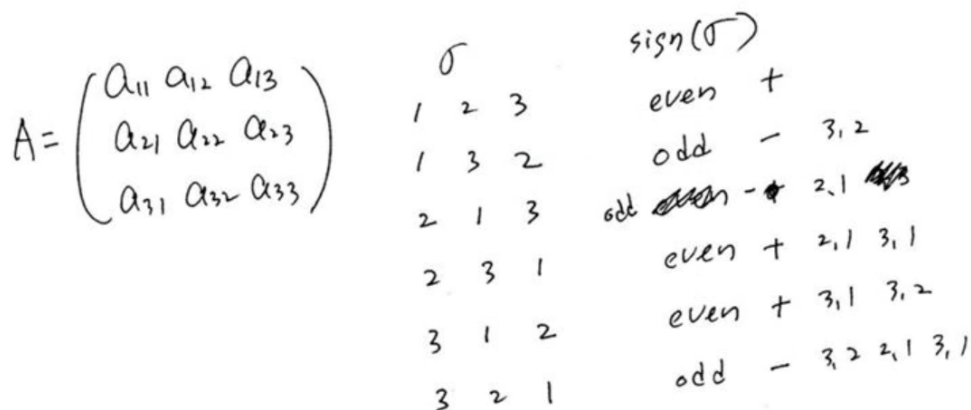 A = ( a11 a12 a13
a21 a22 a23
a31 a32 a33 )
σ sign(σ)
1 2 3 even +
1 3 2 odd - 3,2
2 1 3 odd - 2,1
2 3 1 even + 2,1 3,1
3 1 2 even + 3,1 3,2
3 2 1 odd - 3,2 2,1 3,1